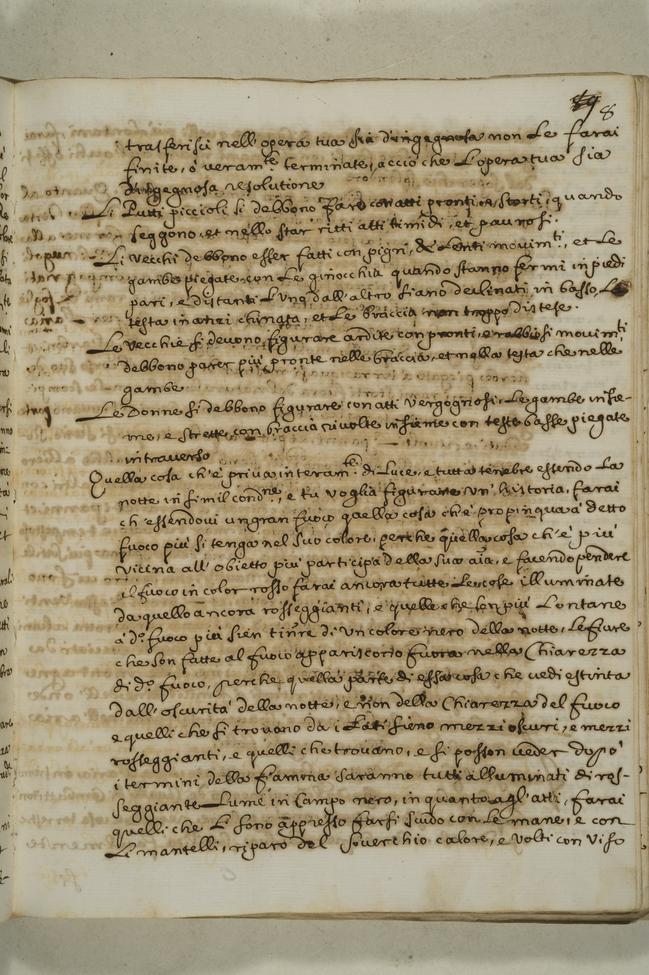 8
trasferisci nell'opera tua sia d'ingegnosa non Le farai
finite, ò veram.te terminate, acciò che L'opera tua sia
d'ingegnosa resolutione
Li Putti piccioli si debbono fare con atti pronti, e storti, quando
seggono, et nello star ritti atti timidi, et paurosi.
Li vecchi debbono esser fatti con pigri, & Lenti movim.ti, et Le
gambe piegate con Le ginocchia quando stanno fermi in piedi
pari, e distanti L'un dall'altro siano declinati in basso, La
testa inanzi chinata, et Le braccia non troppo distese.
Le vecchie si devono figurare ardite con pronti, e rabbiosi movim.ti
debbono parer più pronte nelle braccia, et nella testa che nelle
gambe
Le Donne si debbono figurare con atti vergognosi, Le gambe insie-
me, e strette, con braccia rivolte insieme con teste basse piegate
in traverso
Quella cosa ch'è priva interam.te di Luce, e tutta tenebre essendo La
notte in simil cond.ne, e tu voglia figurare un'historia, farai
ch'essendovi un gran fuoco quella cosa che è propinqua à detto
fuoco più si tenga nel suo colore, perche quella cosa ch'è più
vicina all'obietto più participa della sua, e facendo pendere
il fuoco in color rosso farai ancora tutte Le cose illuminate
da quello ancora rosseggianti, e quelle che son più Lontane
à d.o fuoco più sien tinte di un colore nero della notte, Le figure
che son fatte al fuoco appariscono fuora nella Chiarezza
di d.o fuoco, perche quella parte di essa cosa che vedi è tinta
dall'oscurità della notte, e non della Chiarezza del fuoco
e quelli che si trovano da i Lati sieno mezzi oscuri, e mezzi
rosseggianti, e quelli che trovano, e si posson veder dopò
i termini della fiamma saranno tutti alluminati di ros-
seggiante Lume in Campo nero, in quanto agl'atti, farai
quelli che Li sono appresso farsi scudo con Le mane, e con
Li mantelli, riparo del soverchio calore, e volti con viso